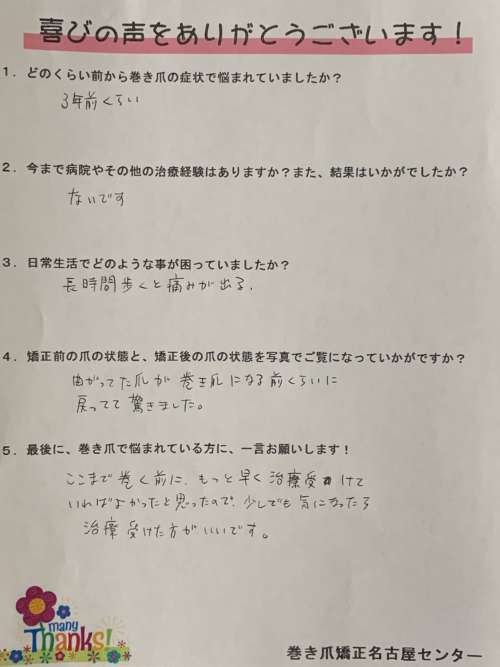 喜びの声をありがとうございます！
1．どのくらい前から巻き爪の症状で悩まれていましたか？
3年前くらい
2．今まで病院やその他の治療経験はありますか？また、結果はいかがでしたか？
ないです
3．日常生活でどのような事が困っていましたか？
長時間歩くと痛みが出る．
4．矯正前の爪の状態と、矯正後の爪の状態を写真でご覧になっていかがですか？
曲がってた爪が巻き爪になる前くらいに
戻ってて驚きました。
5．最後に、巻き爪で悩まれている方に、一言お願いします！
ここまで巻く前に、もっと早く治療受けて
いればよかったと思ったので、少しでも気になったら
治療受けた方がいいです。
many
Thanks!
巻き爪矯正名古屋センター